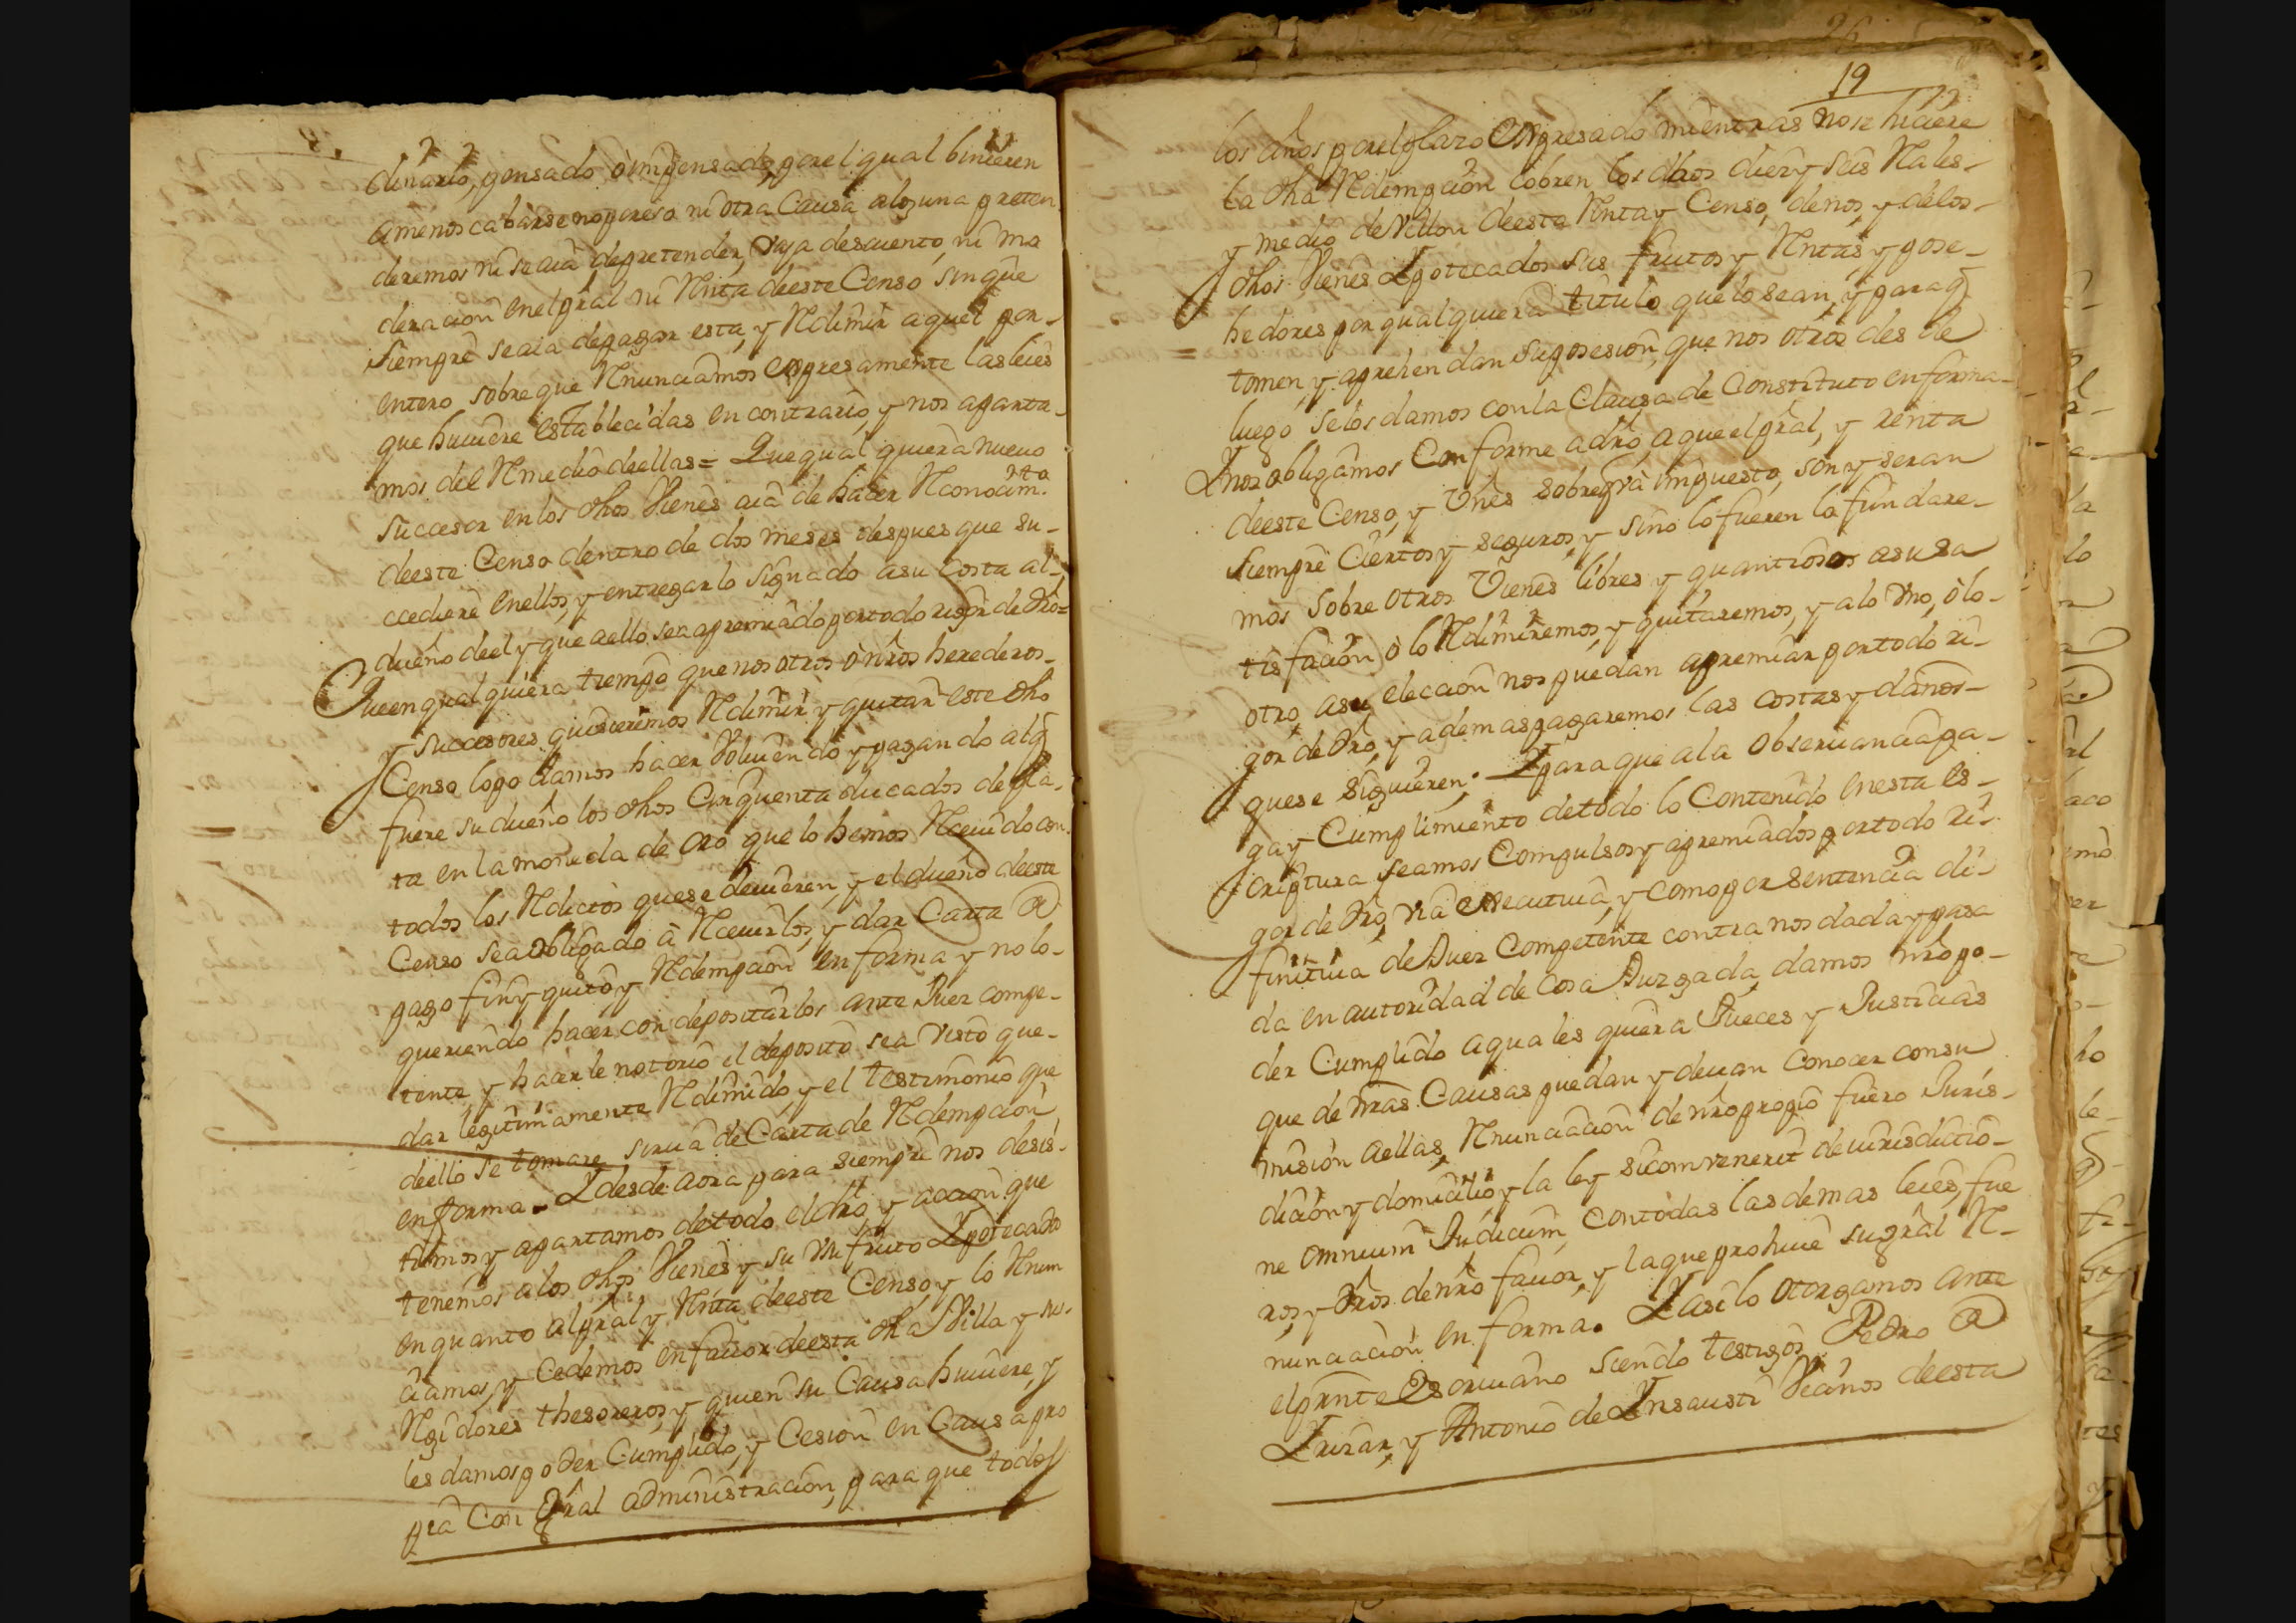 dinario, pensado ò impensado, por el qual binieren
a menos cabarse no por eso ni otra Causa alguna preten
deremos ni se aia de pretender, vaja descuento, ni mo
deracion en el pral ni Renta de este Censo sin que
siempre se aia de pagar esta, y Redimir aquel por
entero sobre que Renunciamos expresamente las leies
que huuiere establecidas en contrario, y nos aparta-
mos del Remedio de ellas = Que qual quiera nueuo
succesor en los dhos Vienes aia de hacer Reconocim.to
de este Censo dentro de dos meses despues que su-
ccediere en ellos, y entregarlo signado a su costa al-
dueño de el y que a ello sea apremiado por todo rigor de dro=
Que en qual quiera tiempo que nos otros ò nros herederos-
y succesores quisieremos Redimir y quitar este dho
Censo lo podamos hacer voluiendo y pagando al q̃
fuere su dueño los dhos Cinquenta ducados de pla-
ta en la moneda de oro que lo hemos Receuido con
todos los Redictos que se deuieren, y el dueño de este
Censo sea obligado à Receuirlos, y dar Carta de
pago fin y quito y Redempcion en forma y no lo-
queriendo hacer con depositarlos ante Juez compe-
tente, y hacerle notorio el deposito sea visto que-
dar legitimamente Redimido, y el testimonio que
de ello se tomare sirua de Carta de Redempcion
en forma. I desde aora para siempre nos desis-
timos y apartamos de todo el dro y accion que
tenemos a los dhos Vienes y su Vsufruto Ipotecado
en quanto al pral y Renta de este Censo, y lo Renun
ciamos, y Cedemos en fauor de esta dha Villa y sus
Regidores thesoreros, y quien su Causa huuiere, y
les damos poder Cumplido, y Cesion en Causa pro
pia Con gral administracion, para que todos
19
los años por el plazo expresado mientras no se hiciere
la dha Redempcion cobren los dhos diez y seis Reales-
y medio de Vellon de esta Renta y Censo, de nos, y de los-
dhos Vienes Ipotecados sus frutos y Rentas, y pose-
hedores por qual quiera titulo que lo sean, y para q̃
tomen, y aprehendan su posesion, que nos otros des de
luego se los damos con la Clausa de Constituto en forma-
I nos obligamos Conforme a dro, a que el pral, y renta
de este Censo, y Vnes sobre q̃ va impuesto, son y seran
siempre Ciertos y seguros, y sino lo fueren lo fundare-
mos sobre otros Vienes libres y quantiosos a su sa
tisfacion ò lo Redimiremos, y quitaremos, y a lo vno, ò lo-
otro, a su eleccion nos puedan apremiar por todo ri-
gor de dro, y ademas pagaremos las costas y daños-
que se siguieren. I para que a la obseruancia pa-
ga y Cumplimiento de todo lo Contenido en esta es-
criptura seamos Compulsos y apremiados por todo ri-
gor de dro, via executiua, y como por sentencia di-
finitiua de Juez Competente contra nos dada y pasa
da en autoridad de Cosa Juzgada, damos nro po-
der Cumplido a quales quiera Jueces y Justicias
que de nras Causas puedan y deuan conocer con su
mision a ellas, Renunciacion de nro propio fuero Juris-
dicion y domicilio, y la ley si conuenerit de iurisdictio-
ne omnium Judicum, con todas las demas leies, fue
ros, y dros de nro fauor, y la que prohiue su gral Re-
nunciacion en forma. I asi lo otorgamos ante
el prnte Escriuano siendo testigos Pedro de
Irizar, y Antonio de Insausti Vecinos de esta